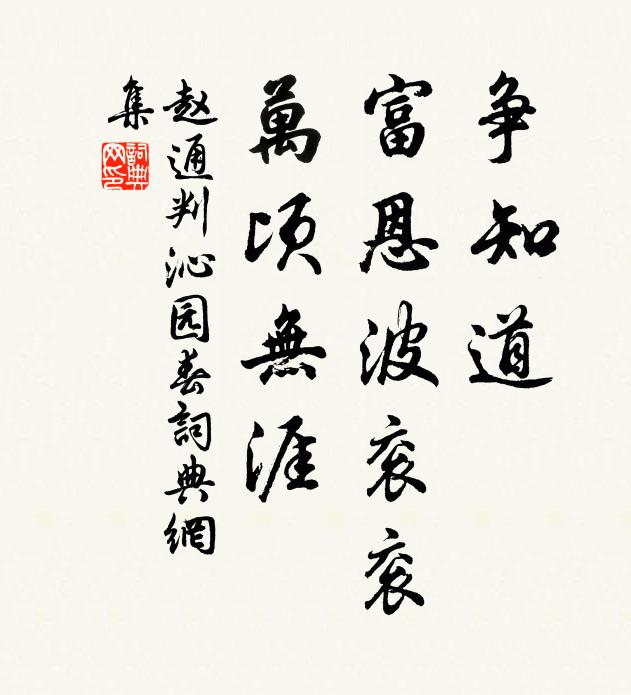 争知道
富恩波衮衮
萬頃無涯
赵通判沁园春詞典網
集
詞典
网印